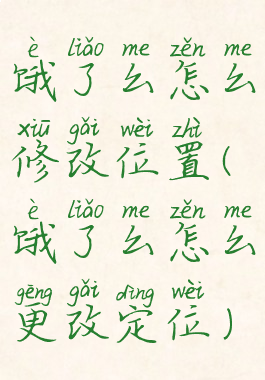 è liǎo me zěn me
饿了么怎么
xiū gǎi wèi zhì
修改位置(
è liǎo me zěn me
饿了么怎么
gēng gǎi dìng wèi
更改定位)